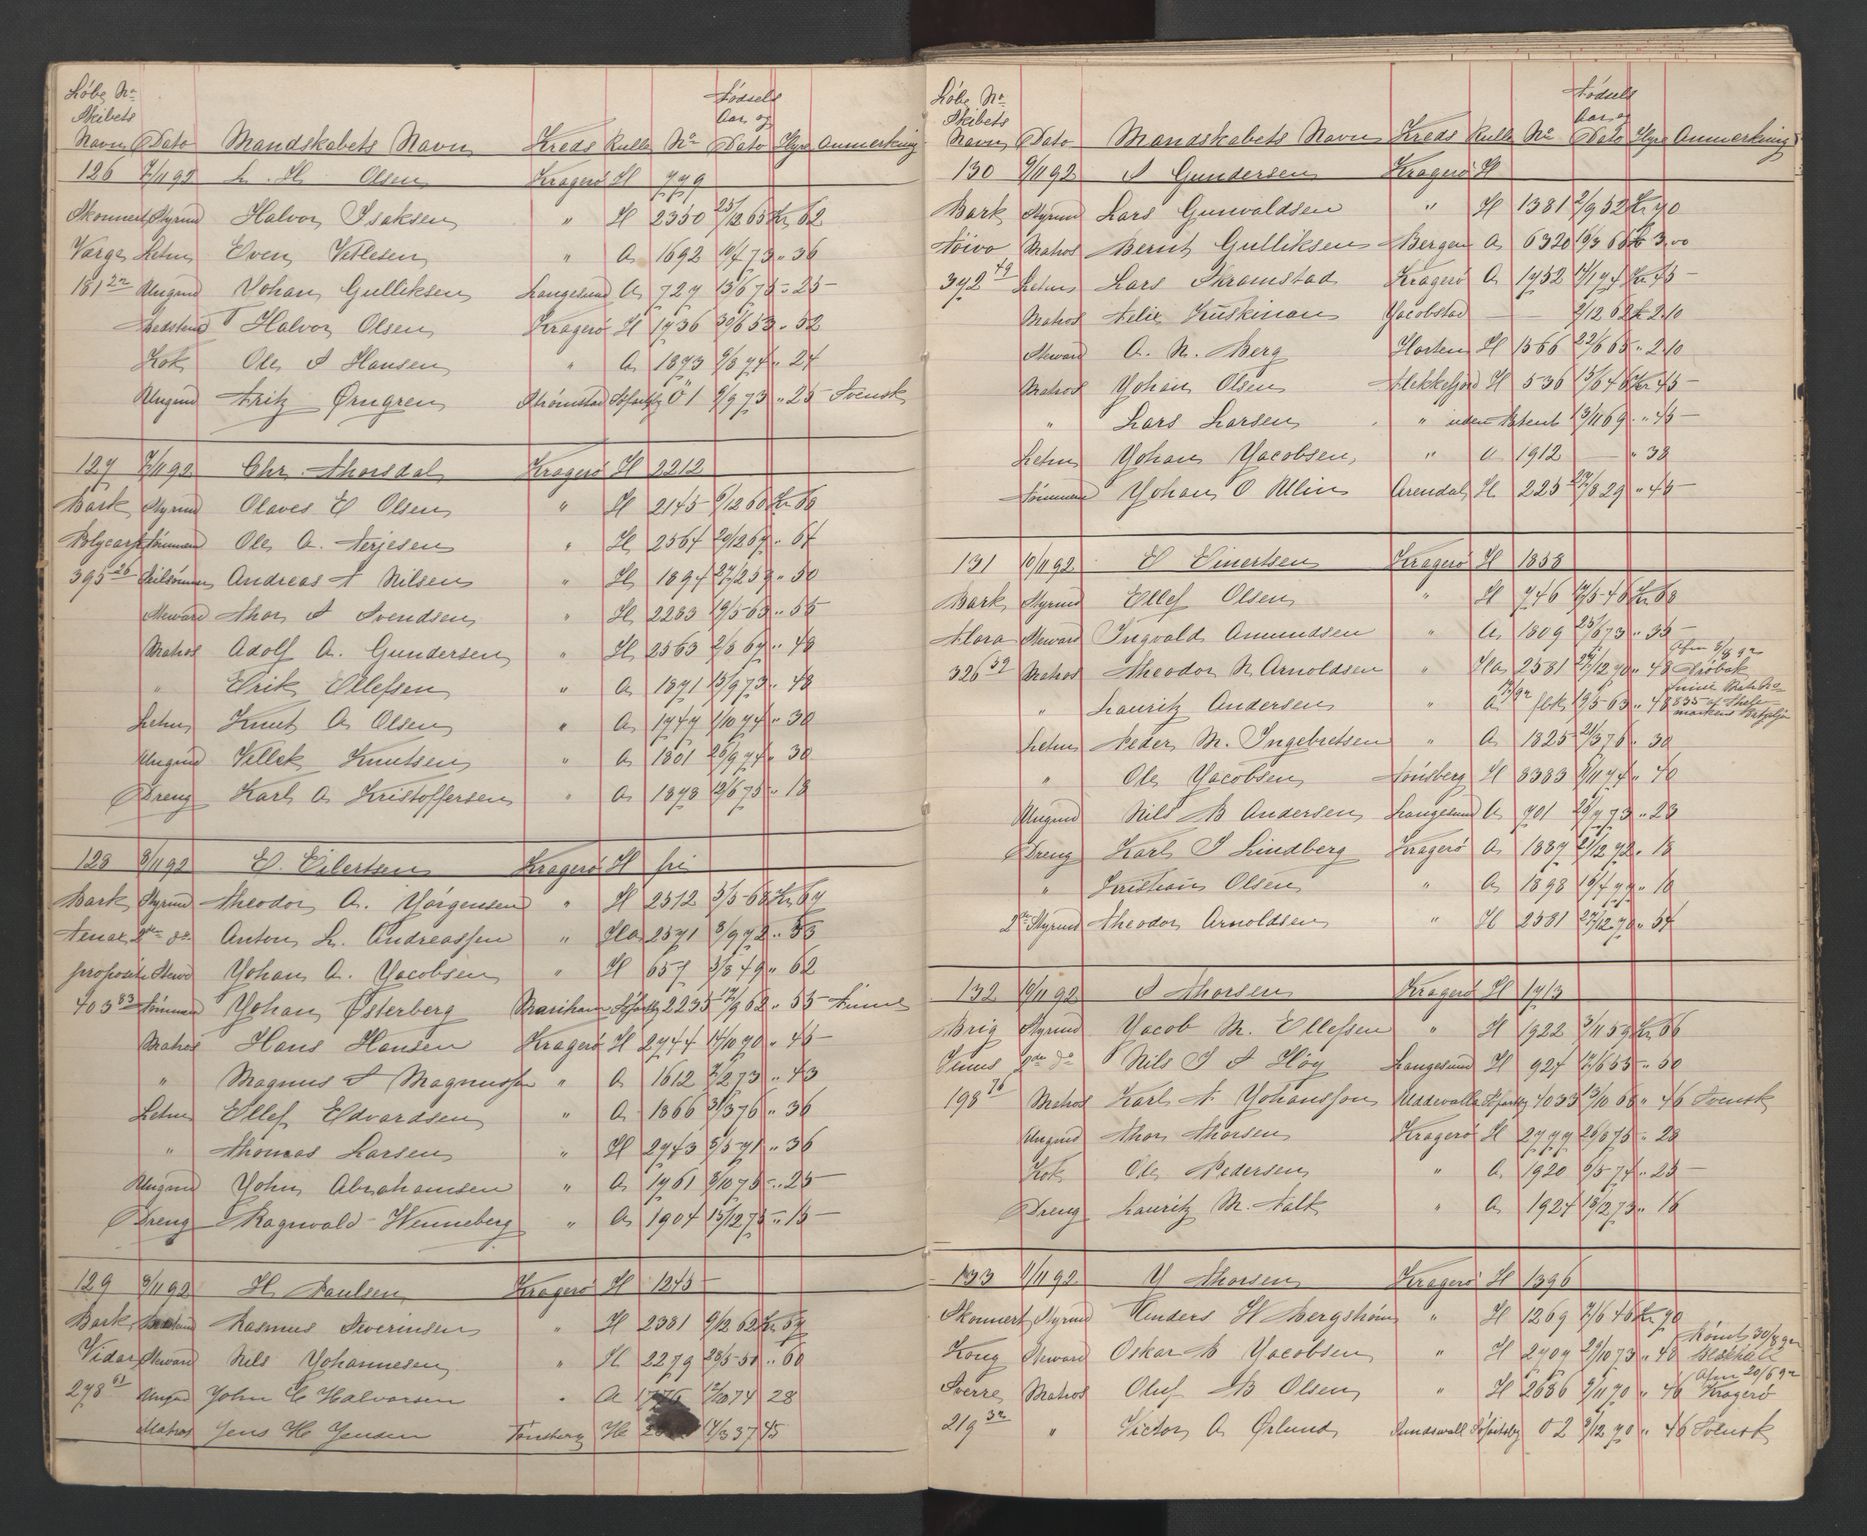 Løbe No
Skibets
Navn Dato Mandskabets Navn Kreds Rulle No Fødsels Aar og Dato Hyre Anmerkning
126 7/11 92 L. H. Olsen Kragerø H 779
Skonnert Styrmd Halvor Isaksen " H 2350 25/12 65 Kr 62
Varge Letm Even Vetlesen " A 1692 10/4 73 " 36
181 Ungmd Johan Gulliksen Langesund A 727 13/6 75 " 25
Bedstmd Halvor Olsen Kragerø H 1736 30/6 53 " 52
Kok Ole S Hansen " A 1873 9/8 74 " 24
Ungmd Fritz Ørngren Strømstad 01 9/9 73 " 25 Svensk
127 7/11 92 Chr. Thorsdal Kragerø H 2212
Bark Styrmd Olaves E Olsen " H 2145 6/12 60 Kr 68
Polycarp Tømmrm Ole A. Terjesen " H 2564 20/12 67 " 64
395 26 Seilsømmer Andreas T Nilsen " H 1894 27/2 59 " 50
Steward Thor S Svendsen " H 2283 19/5 63 " 55
Matros Adolf A. Gundersen " H 2563 2/8 67 " 48
" Erik Ellefsen " A 1871 15/9 73 " 48
Letm Knut A Olsen " A 1747 1/10 74 " 30
Ungmd Villek Knutsen " A 1801 26/9 74 " 30
Dreng Karl A Kristoffersen " A 1878 12/6 75 " 18
128 8/11 92 E. Eilertsen Kragerø H fri
Bark Styrmd Theodor A. Jørgensen " H 2512 3/5 68 Kr 67
Tenax 2den do Anton L. Andreassen " Ha 2571 8/9 72 " 55
propositi Stewd Johan A. Jacobsen " H 657 3/8 49 " 62
403 83 Tømmrm Johan Østerberg Mariham 2235 17/9 62 " 55 Finne
Matros Hans Hansen Kragerø H 2744 14/10 70 " 45
" Magnus S Magnussen " A 1612 7/2 73 " 43
Letm Ellef Edvardsen " A 1866 31/3 76 " 36
" Thomas Larsen " H 2743 5/5 71 " 36
Ungmd John Abrahamsen " A 1761 8/10 75 " 25
Dreng Ragnvald Wenneberg " A 1904 15/12 75 " 15
129 8/11 92 H. Paulsen Kragerø H 1245
Bark Rasmus Severinsen " H 2381 9/12 62 Kr 67
Vidar Steward Nils Johannesen " H 2279 28/5 51 " 60
278 61 Ungmd John C Halvorsen " A 1776 12/10 74 28
Matros Jens H Jensen Tønsberg H 14/3 37 45
Løbe No
Skibets
Navn Dato Mandskabets Navn Kreds Rulle No Fødsels Aar og Dato Hyre Anmerkning
130 9/11 92 S Gundersen Kragerø H
Bark Styrmd Lars Gunvaldsen " H 1381 2/9 52 Kr 70
Matros Bernt Gulliksen Bergen A 6320 19/3 66 3.00
372 49 Letm Lars Skramstad Kragerø A 1752 14/1 74 Kr 45
Matros Felix Kuskinan Jacobstad — — 2/12 62 2.10
Steward A. N. Berg Horten H 1566 22/6 65 " 2.10
Matros Johan Olsen Flekkefjord H 536 13/6 46 Kr 45
" Lars Larsen " uden Patent 13/11 69 " 45
Letm Johan Jacobsen " A 1912 — " 38
Tømmrm Johan O Ulin Arendal H 225 27/8 29 " 45
131 10/11 92 E Einertsen Kragerø H 1858
Bark Styrmd Ellef Olsen " H 746 7/5 46 Kr 68
Flora Steward Ingvald Amundsen " A 1809 25/8 73 " 35
326 52 Matros Theodor N Arnoldsen " Ha 2581 27/12 70 " 48 Afm 8/8 92 Drøbak
" Lauritz Andersen " A fbk 19/5 63 " 48
Letm Peder M. Ingebretsen " A 1825 21/3 76 " 30
" Ole Jacobsen Tønsberg H 8383 8/11 74 " 40
Ungmd Nils B Andersen Langesund A 701 20/7 73 " 23
Dreng Karl S Lindberg Kragerø A 1887 21/12 72 " 18
" Kristian Olsen " A 1898 16/4 77 " 10
2den Styrmd Theodor Arnoldsen " H 2581 27/12 70 " 54
132 10/11 92 S Thorsen Kragerø H 1713
Brig Styrmd Jacob M. Ellefsen " H 1922 3/11 59 Kr 66
2de do Nils S S Høy Langesund H 924 17/6 55 " 50
198 76 Matros Karl A Johansson Uddevalla 4033 13/10 68 " 46 Svensk
Ungmd Thor Thorsen Kragerø H 2777 26/8 75 " 28
Kok Ole Pedersen " A 1920 6/5 74 " 25
Dreng Lauritz M. Falk " A 1924 18/2 73 " 16
133 11/11 92 J Thorsen Kragerø H 1396
Skonnert Styrmd Anders H Bergstrøm " H 1269 7/6 46 Kr 70
Kong Steward Oskar B Jacobsen " H 2707 29/10 73 " 48 Rømt 30/8 92
Sverre Matros Oluf B Olsen " H 2686 9/11 70 " 46 Afm 20/6 92 Kragerø
219 32 " Victor A Ørlund Sundsvall 02 3/12 70 " 46 Svensk